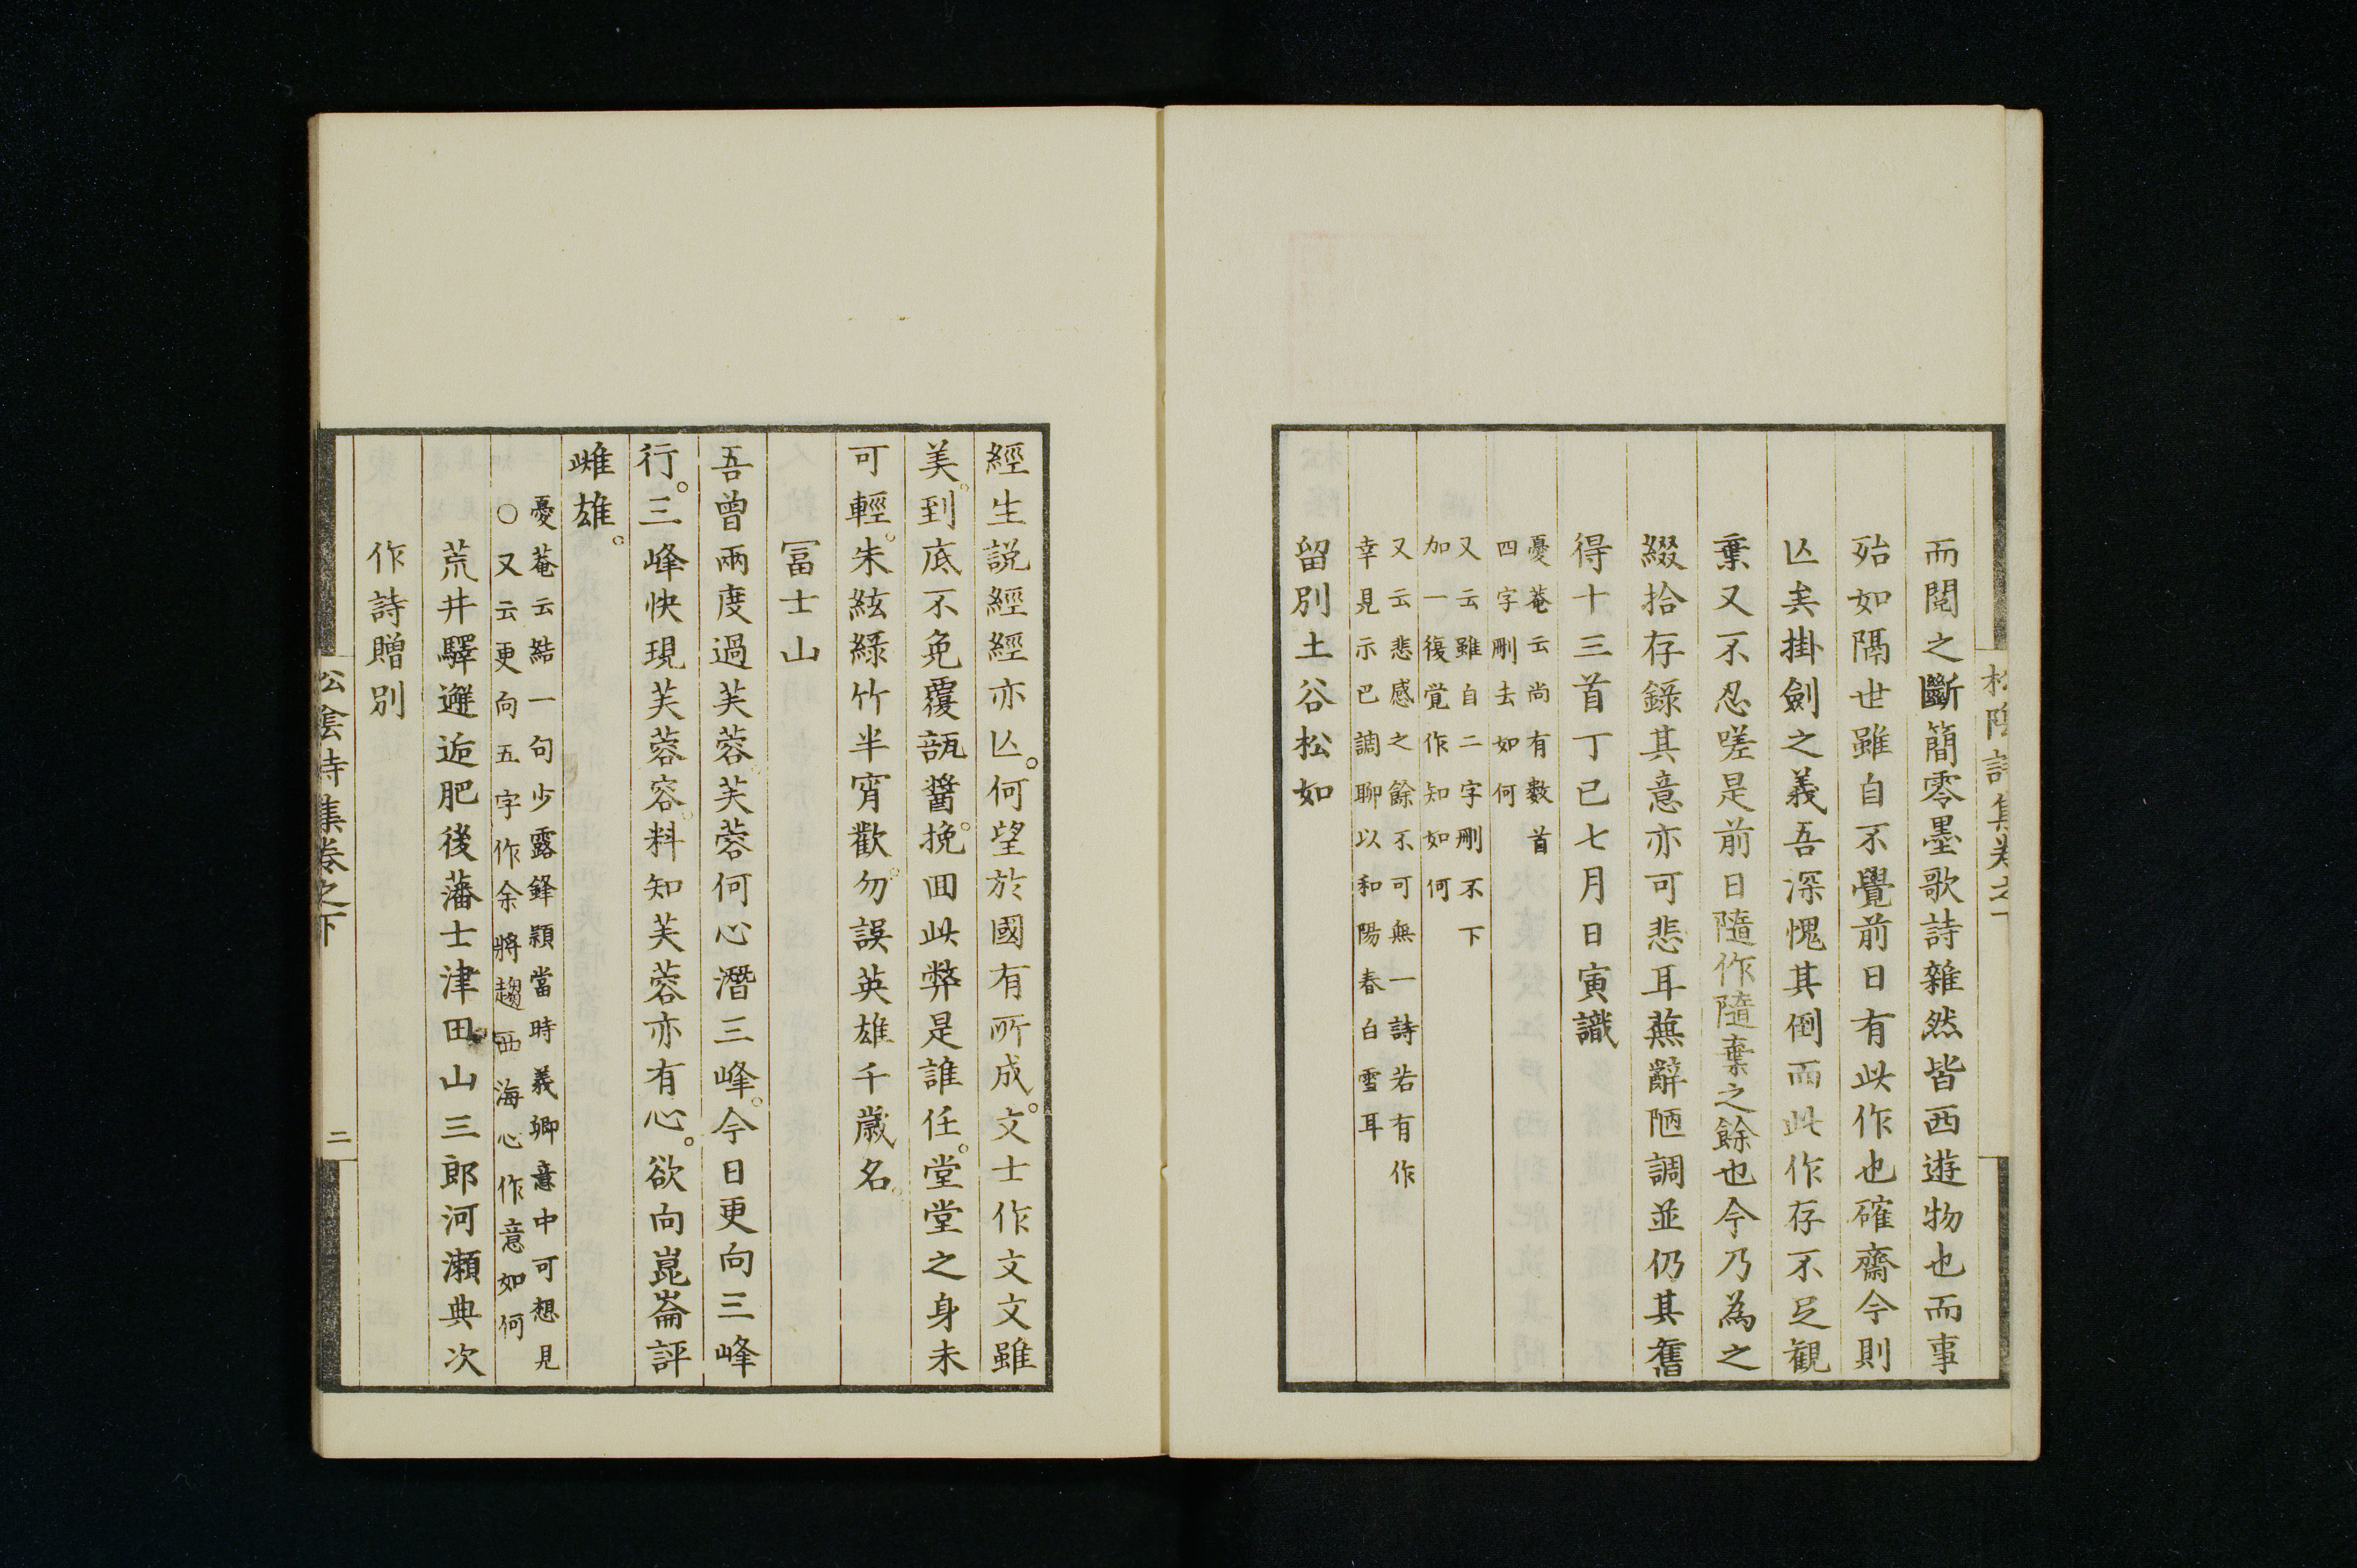 松陰詩集卷之下
而閱之斷簡零墨歌詩雜然皆西遊物也而事
殆如隔世雖自不覺前日有此作也確齋今則
亾矣掛劍之義吾深愧其倒而此作存不足観
棄又不忍嗟是前日隨作隨棄之餘也今乃為之
綴拾存錄其意亦可悲耳蕪辭陋調並仍其舊
得十三首丁巳七月日寅識
憂菴云尚有數首
四字刪去如何
又云雖自二字刪不下
加一復覚作知如何
又云悲感之餘不可無一詩若有作
幸見示已調聊以和陽春白雪耳
留別土谷松如
經生説經經亦亾。何望於國有所成。文士作文文雖
美。到底不免覆瓿醬。挽回此弊是誰任。堂堂之身未
可輕。朱絃緑竹半宵歡。勿誤英雄千歳名。
冨士山
吾曾兩度過芙蓉。芙蓉何心潛三峰。今日更向三峰
行。三峰快現芙蓉容。料知芙蓉亦有心。欲向崑崙評
雌雄。
憂菴云結一句少露鋒穎當時義卿意中可想見
○又云更向五字作余將趨西海心作意如何
荒井驛邂逅肥後藩士津田山三郎河瀬典次
作詩贈別
松陰詩集卷之下
二